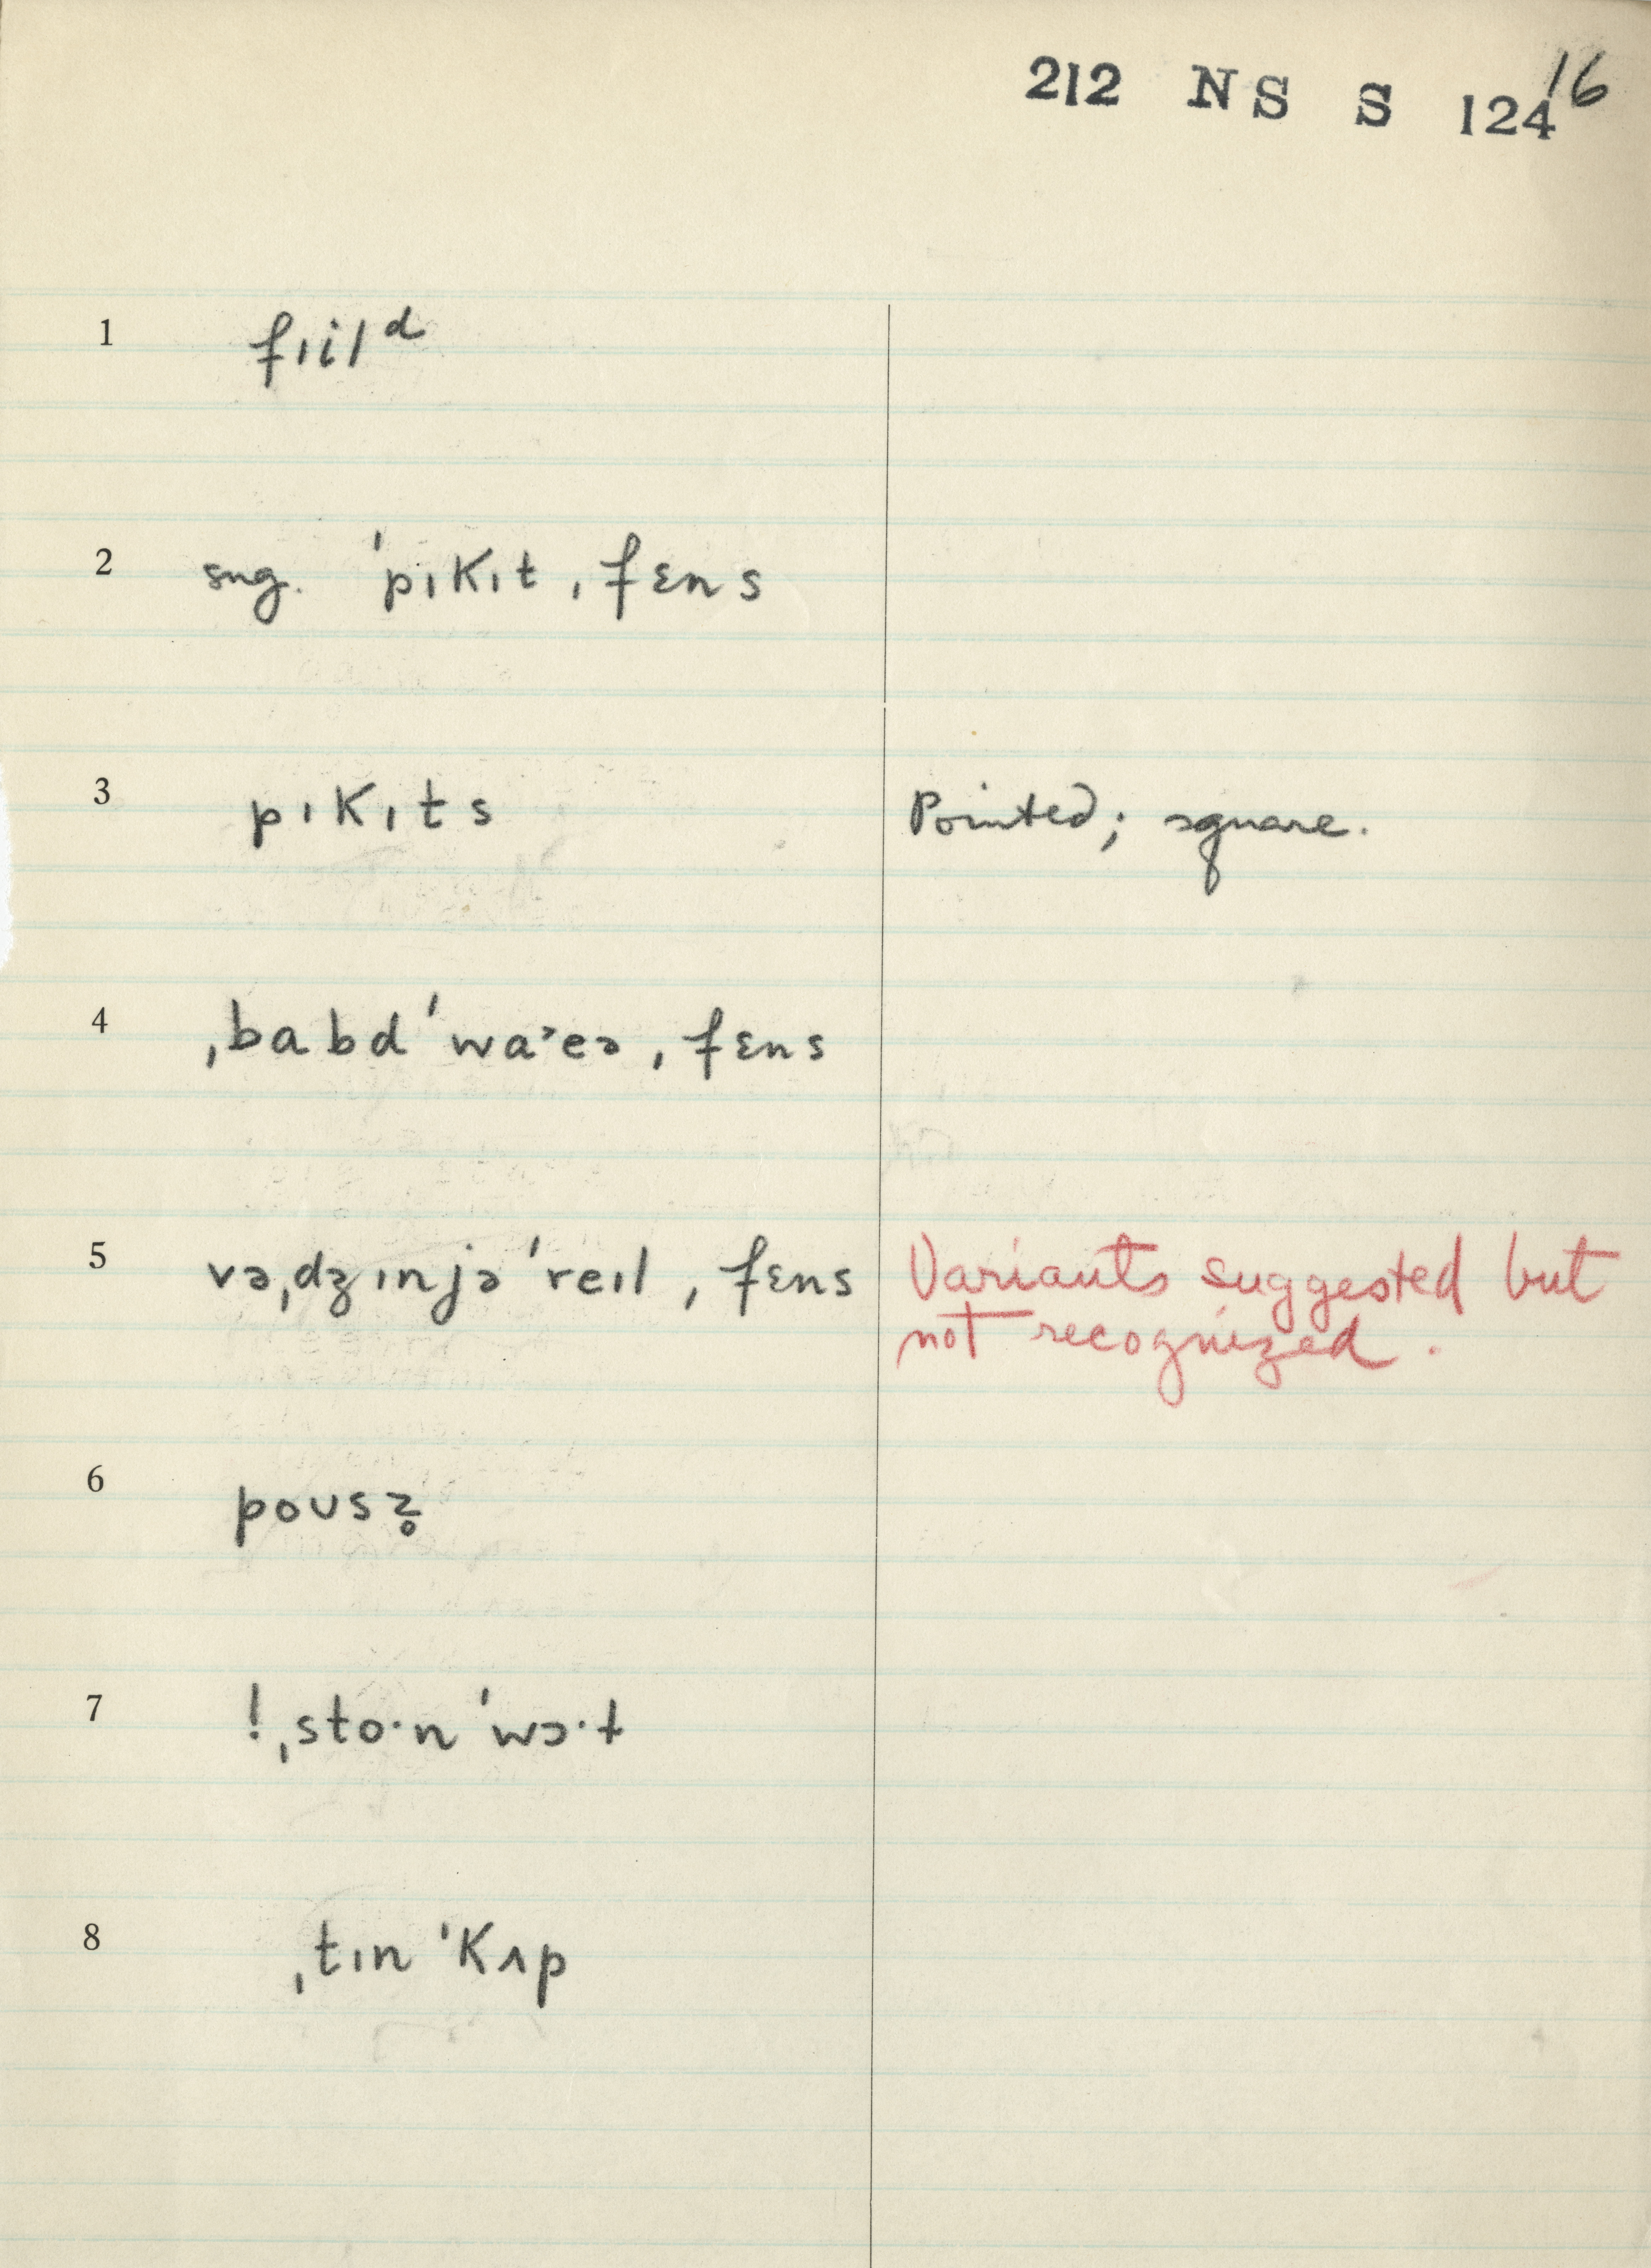 212 NS S 124 16
1 fɪil ᵈ
2 sug. ˈpɪkɪt ˌfɛns
3 pɪkɪts Pointed; square.
4 ˌbabdˈwaˑeə ˌfɛns
5 vəˌdʒɪnjəˈreɪl ˌfɛns Variants suggested but
not recognized.
6 poʊsz̥
7 ! ˌstoˑnˈwɔˑɫ
8 ˌtɪnˈkʌp